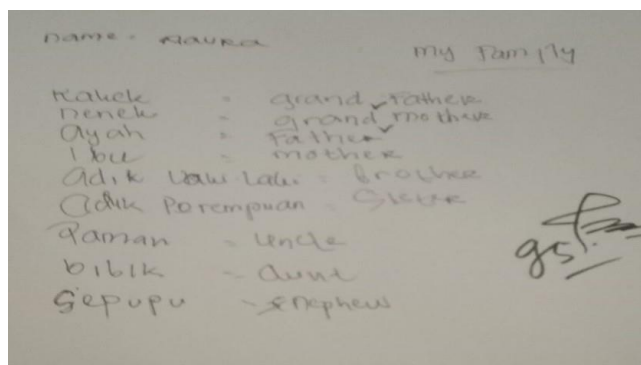 name - Naura
my Family
Kakek = grand Father
nenek = grand mother
ayah = Father
Ibu = mother
adik Laki Laki = brother
adik Porempuan = Sister
Paman = uncle
bibik = aunt
Sepupu = nephew
95